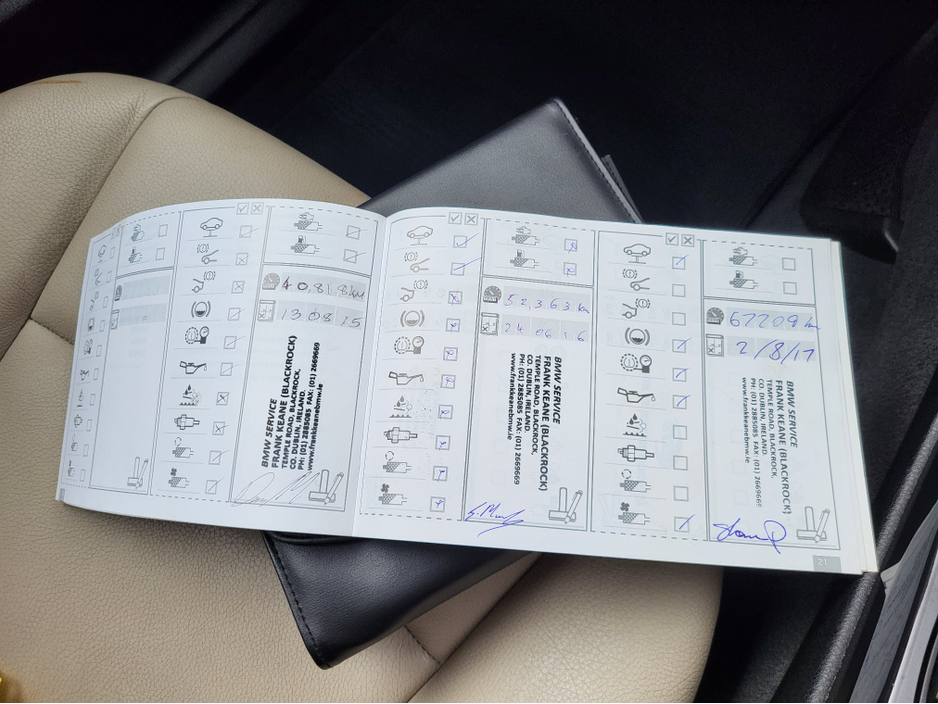 40,818 km
13 08 15
BMW SERVICE
FRANK KEANE (BLACKROCK)
TEMPLE ROAD, BLACKROCK,
CO. DUBLIN, IRELAND.
PH: (01) 2885085 FAX: (01) 2669669
www.frankkeanebmw.ie
52363 km
24 06 16
BMW SERVICE
FRANK KEANE (BLACKROCK)
TEMPLE ROAD, BLACKROCK,
CO. DUBLIN, IRELAND.
PH: (01) 2885085 FAX: (01) 2669669
www.frankkeanebmw.ie
67209 km
2/8/17
BMW SERVICE
FRANK KEANE (BLACKROCK)
TEMPLE ROAD, BLACKROCK,
CO. DUBLIN, IRELAND.
PH: (01) 2885085 FAX: (01) 2669669
www.frankkeanebmw.ie
21